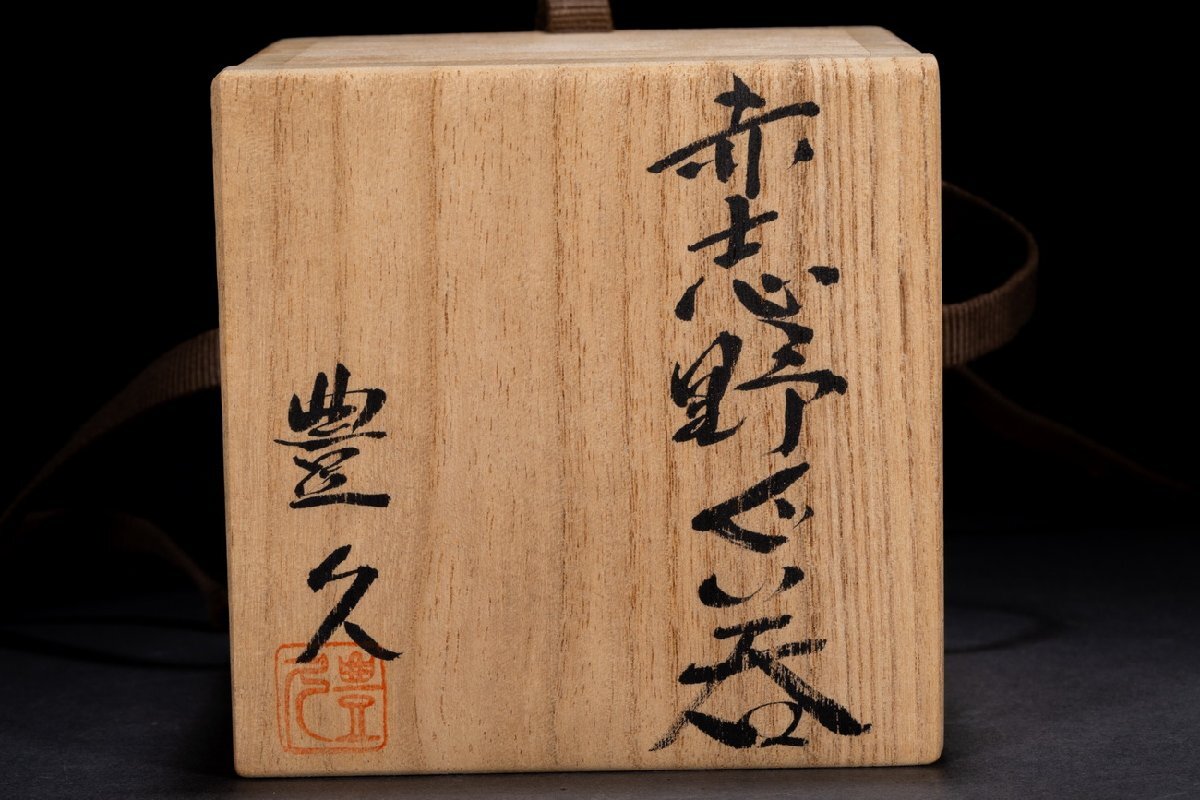 赤志野ぐい呑
豊久
豊久